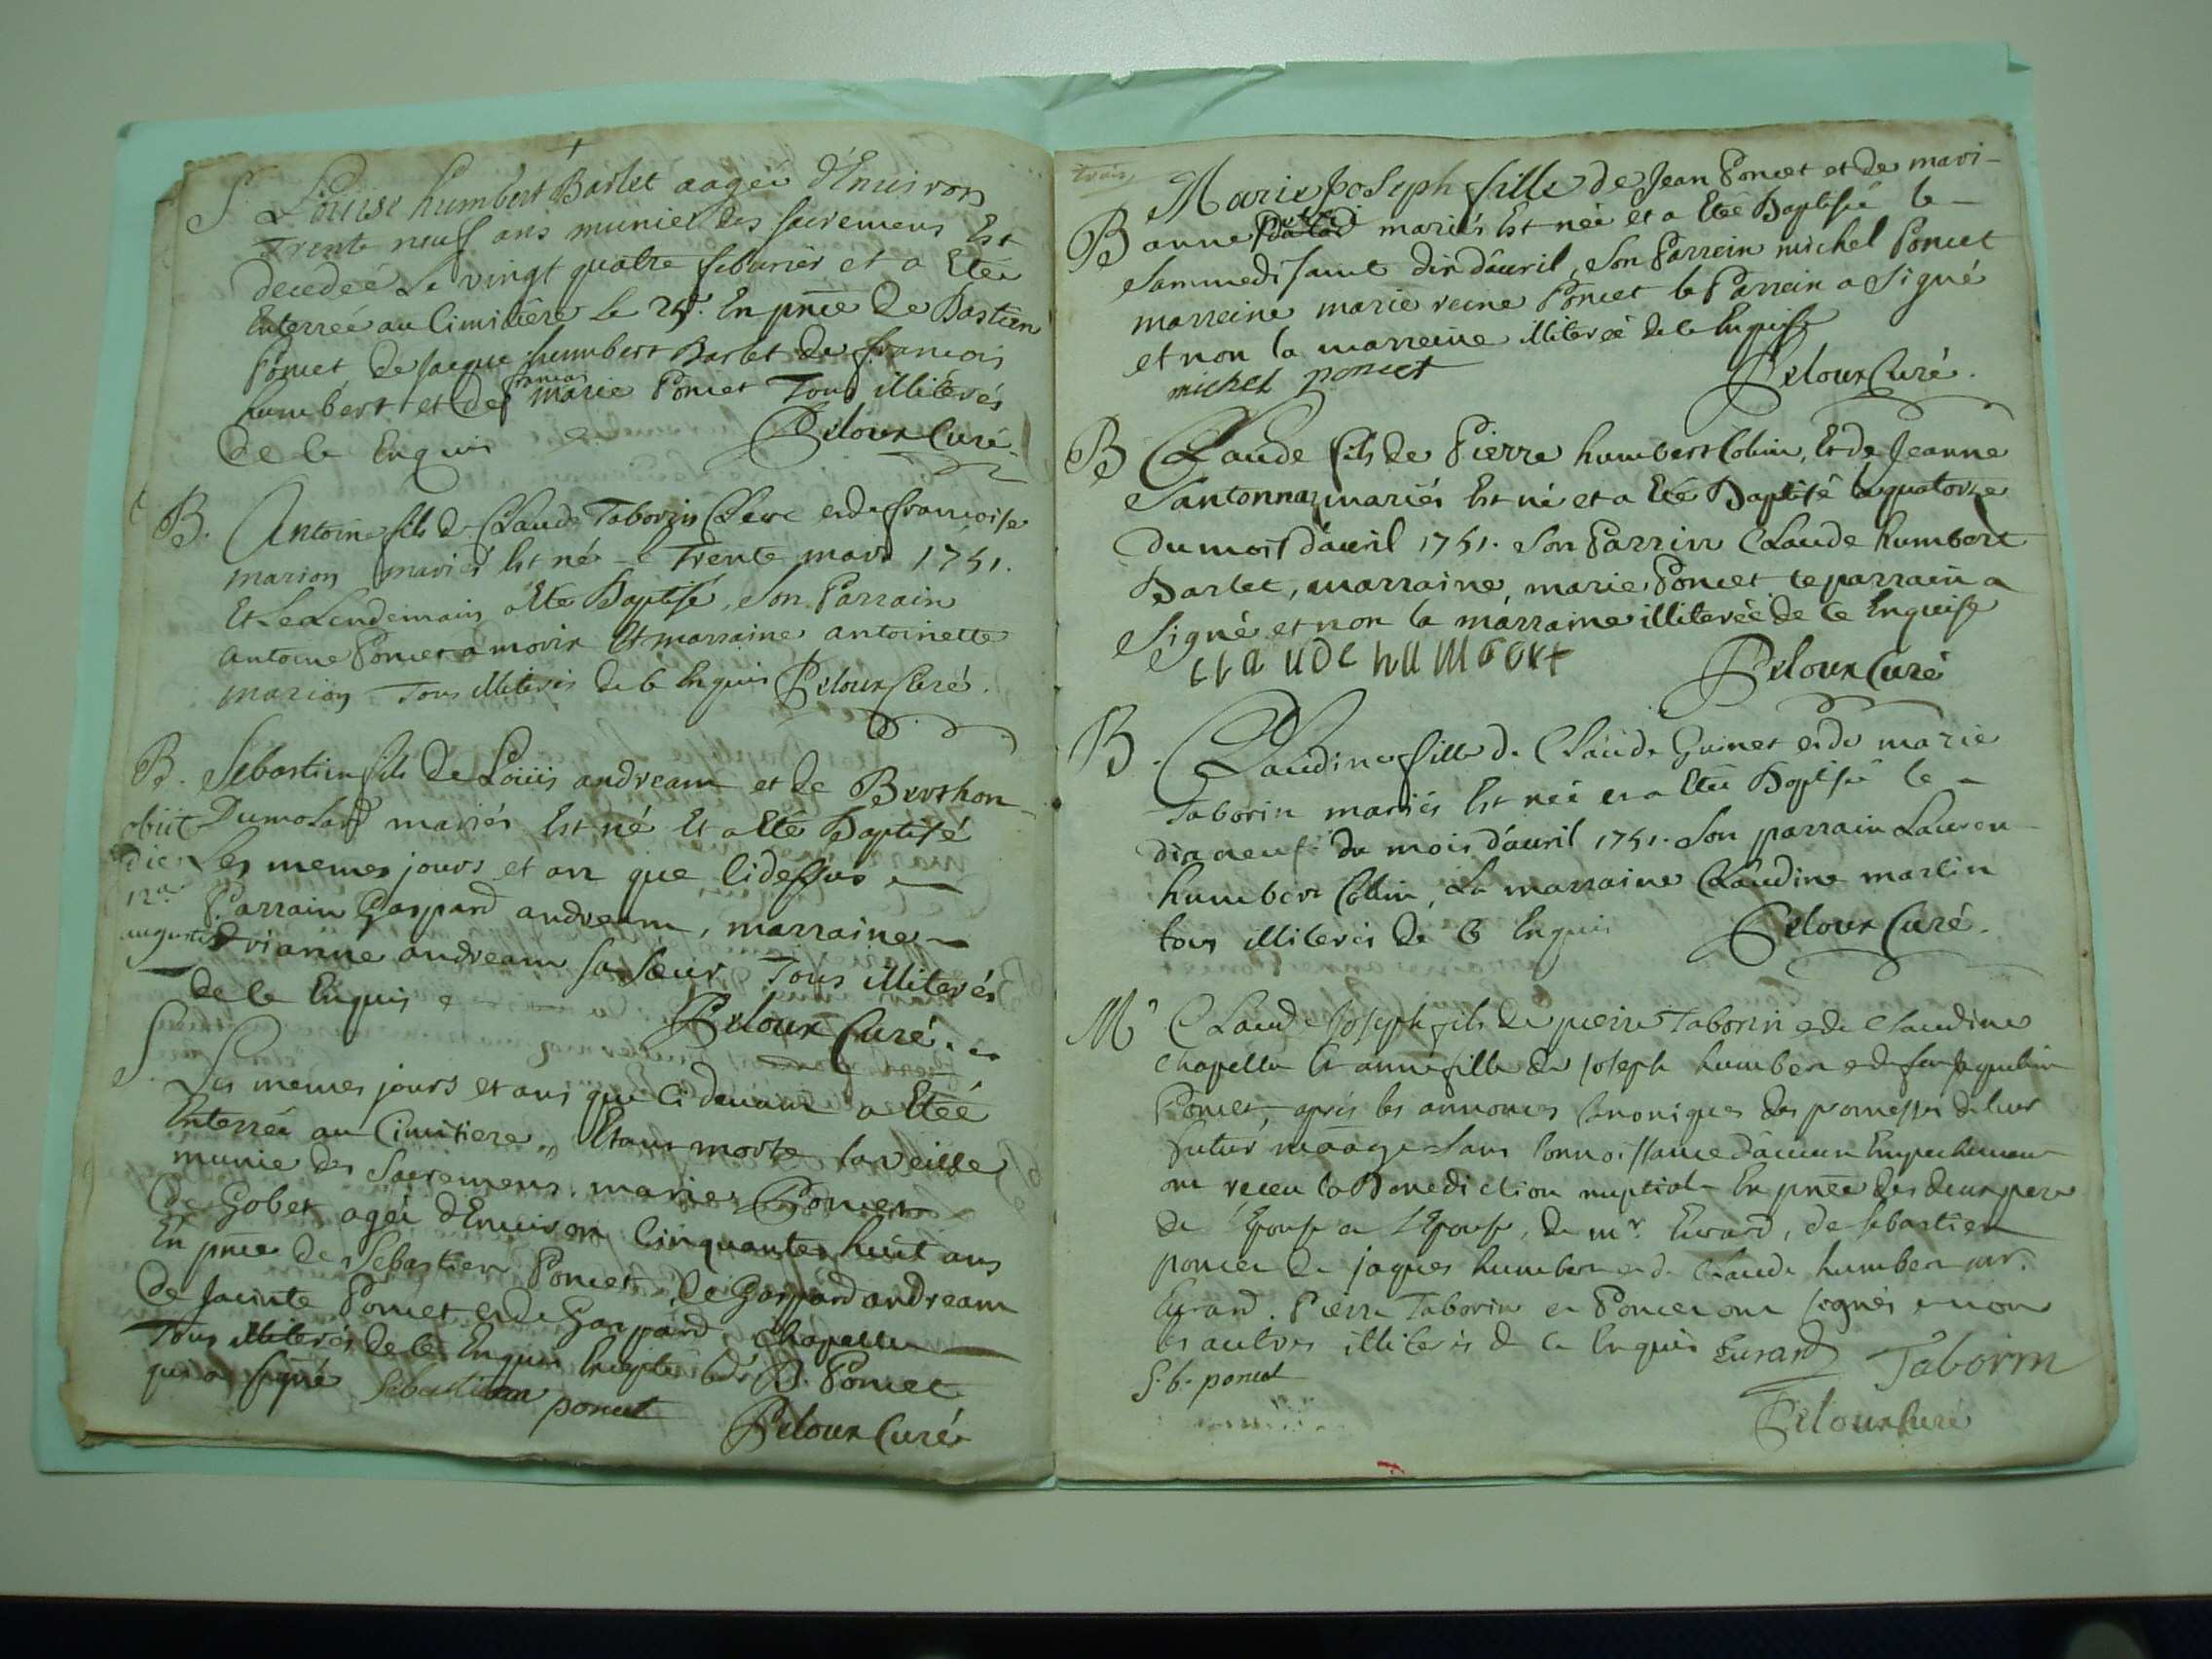 S. Louise humbert Barlet aagée d'Enuiron
Trente neuf ans munie des sacremens Est
decedeé Le vingt quatre feburier et a Etée
Enterreé au Cimitiere le 25. En pnce de Bastien
Poncet de Jacque humbert Barlet de francois
humbért et de francoi marie Poncet Tous illiterés
de le Enquis Peloux Curé
B. Antoine fils de Claude Taborin Clerc et de francoise
marion mariés Est né le Trente mars 1751.
Et Le Lendemain a Ete Baptisé, Son Parrain
antoine Poncet Et marraine antoinette
marion Tous illiterés de le Enquis Peloux Curé.
B. Sebastien fils de Loüis andream et de Berthon
Dumolard mariés Est né Et a Eté Baptisé
obiit die 12a augusti
Les memes jours et an que Cidessus
Parrain Gaspard andream, marraine
andream sa soeur Tous illiterés
de le Enquis Peloux Curé.
S. Les memes jours et ans que Ci deuant a Etéé
Enterrée au Cimitiere, Etant morte la veille
munie des Sacremens marie Poncet
de Gobet ageé d'Enuiron Cinquante huit ans
En pnce de Sebastien Poncet, de Gaspard andream
de Jacinte Poncet et de Gaspard Chapelle
Tous illiterés de le Enquis Excepté led. S. Poncet
qui a signé Sebastien poncet
Peloux Curé
trois
Marie Joseph fille de Jean Poncet et de mari-
B anne mariés Est née et a Eté Baptisée le
Sammedi saint dix d'auril, Son Parrein michel Poncet
marreine marie reine Poncet le Parrein a Signé
et non la marreine illitereé de le Enquise
michel poncet Peloux Curé.
B Claude fils de Pierre humbert Colin, Et de Jeanne
Santonnaz mariés Est né et a Eté Baptisé le quatorze
du mois d'auril 1751. Son Parrin Claude humbert
Barlet, marraine, marie Poncet le parrain a
Signé et non la marraine illitereé de le Enquise
claude humbert Peloux Curé
B. Claudine fille de Claude Guinet et de marie
Taborin mariés Est née et a Etée Baptisée le
dix neuf du mois d'auril 1751. Son parrain Lauren
humbert Collin, La marraine Claudine martin
tous illiterés de le Enquis Peloux Curé.
M. Claude Joseph fils de pierre Taborin et de Claudine
Chapelle Et anne fille de Joseph humbert et de feu Jaqueline
Poncet, aprés les annonces Canoniques des promesses de leur
futur maage Sans Connoissance d'aucun Empechement
ont receu la Benediction nuptiale En pnce des deux pere
de l'Epoux et L'Epouse, de mr. Eurard, de Sebastien
poncet de jaques humbert et de Claude humbert mr.
Eurard. Pierre Taborin et Poncet ont signés et non
les autres illiterés de le Enquis Eurard Taborin
S. b. poncet
Peloux Curé